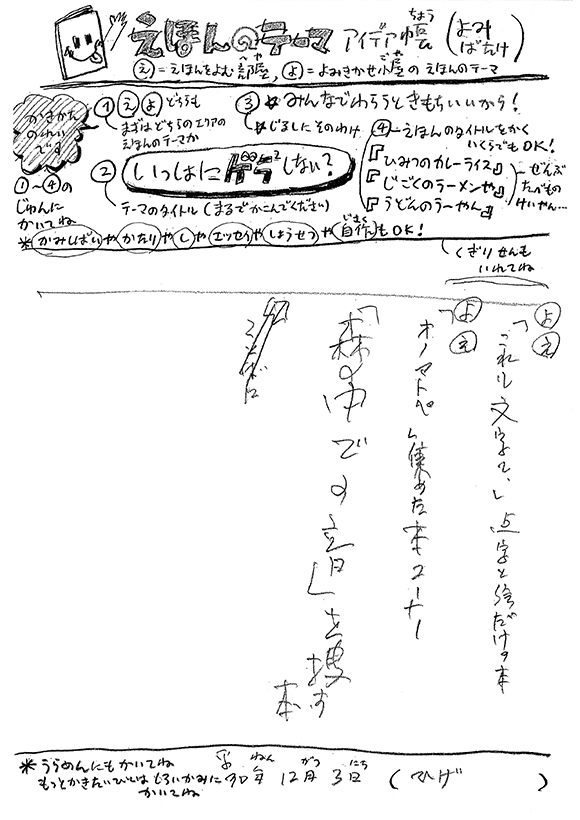 えほんのテーマ アイデア帳 (よみばたけ)
ちょう
え=えほんをよむ部屋, よ=よみきかせ小屋のえほんのテーマ
かきかたのれいです
①~④のじゅんにかいてね
① え よ どちらも
まずはどちらのエリアの
えほんのテーマか
② いっしょにゲラゲラしない?
テーマのタイトル(まるでかこんでください)
③ ※みんなでわらうときもちいいから!
※じるしにそのわけ
④ーえほんのタイトルをかく
いくらでもOK!
『ひみつのカレーライス』
『じごくのラーメンや』
『うどんのうーやん』
ぜんぶ
たがもの
けいやん…
*かみしばいやかたりやしやエッセイやしょうせつや自作もOK!
くぎりせんも
いれてね
よ え
点字と絵だけの本
よ え
「オノマトペ」集めた本コーナー
「森の中でする音」を捜す
本
*うらめんにもかいてね
もっとかきたいひとはしろいかみに
かいてね
30年 12月 3日 (ひげ)